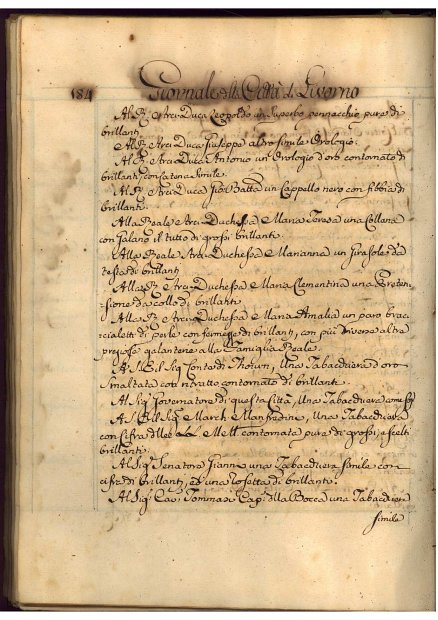 184 Giornale della Città di Livorno
Al R. Arci-Duca Leopoldo un superbo pennacchio pure di
brillanti
Al R. Arci Duca Giuseppe altro simile Orologio.
Al R. Arci Duca Antonio un Orologio d'oro contornato di
brillanti con catena simile.
Al R. Arci Duca Gio: Batta un Cappello nero con fibbia di
brillanti.
Alla Reale Arci-Duchessa Maria Teresa una Collana
con Galano il tutto di grossi brillanti.
Alla Reale Arci-Duchessa Marianna un Girasole da
testa di brillanti
Alla R. Arci Duchessa Maria Clementina una Preten-
sione da collo di brillanti
Alla R. Arci-Duchessa Maria Amalia un paro brac-
cialetti di perle con fermezze di brillanti, con più diverse altre
preziose galanterie alla Famiglia Reale.
A S. E. il Sig. Conte di Thourn, Una Tabacchiera d'oro
smaltata con ritratto contornato di brillanti.
Al Sig. Governatore di questa Città, Una Tabacchiera come
A S. E. il Sig. March. Manfredini, Una Tabacchiera
con Cifra delle LL. MM. contornata pure di grossi, e scelti
brillanti.
Al Sig. Senatore Gianni una Tabacchiera simile con
cifra di brillanti, et una rosetta di brillanti.
Al Sig. Cav. Tommasi Cap. della Bocca una Tabacchiera
simile